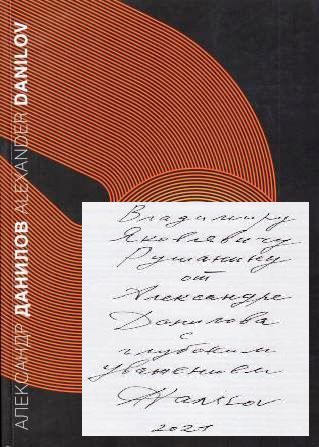 АЛЕКСАНДР ДАНИЛОВ ALEXANDER DANILOV
Владимиру
Яковлевичу
Рушанину
от
Александра
Данилова
с
глубоким
уважением
Danilov
2021